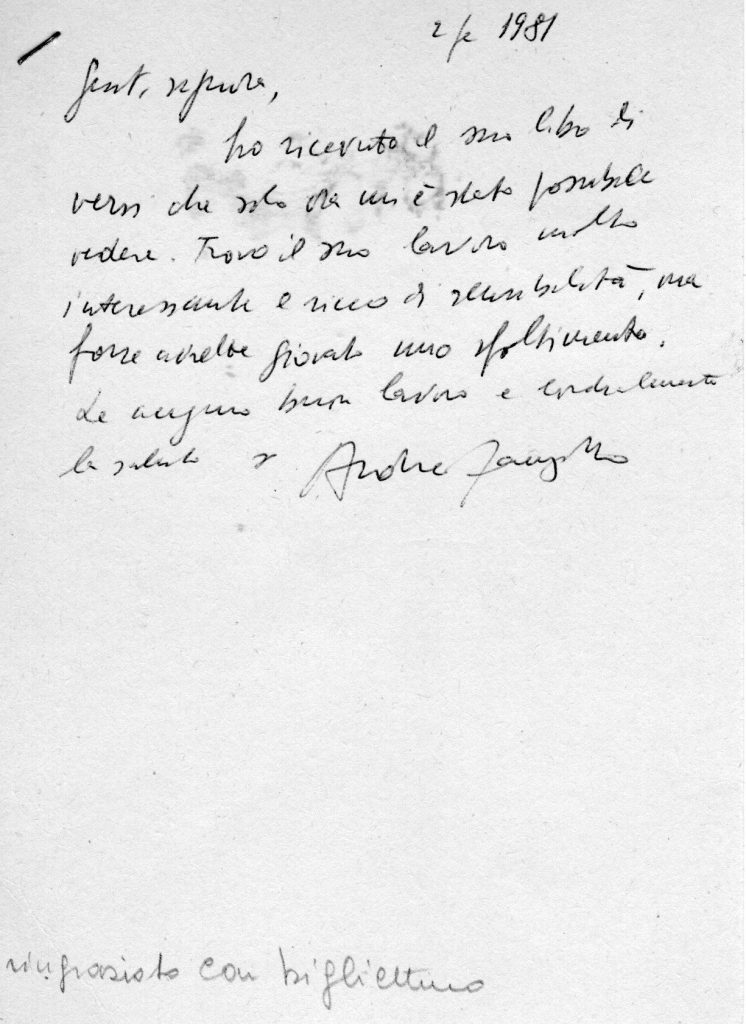 1981
Gent. signora,
ho ricevuto il suo libro di
versi che solo ora mi è stato possibile
vedere. Trovo il suo lavoro molto
interessante e ricco di sensibilità, ma
forse avrebbe giovato uno sfoltimento.
Le auguro buon lavoro e cordialmente
la saluto
Andrea Zanzotto
ringraziato con bigliettino